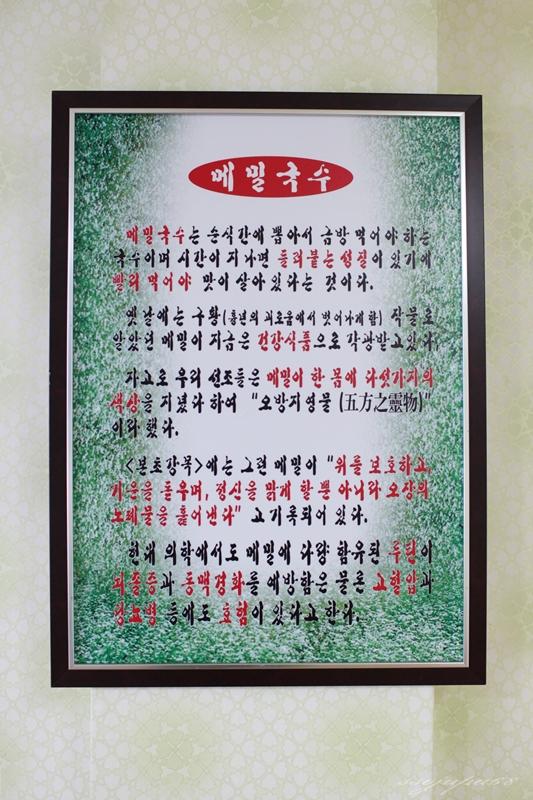 메밀국수
메밀국수는 순식간에 뽑아서 금방 먹어야 하는
국수이며 시간이 지나면 들러붙는 성질이 있기에
빨리 먹어야 맛이 살아 있다는 것이다.
옛날에는 구황(흉년의 괴로움에서 벗어나게 함) 작물로
알았던 메밀이 지금은 건강식품으로 각광받고 있다.
자고로 우리 선조들은 메밀이 한 몸에 다섯가지의
색상을 지녔다 하여 "오방지영물(五方之靈物)"
이라 했다.
<본초강목>에는 그런 메밀이 "위를 보호하고,
기운을 돋우며, 정신을 맑게 할 뿐 아니라 오장의
노폐물을 훑어낸다" 고 기록되어 있다.
현대 의학에서도 메밀에 다량 함유된 루틴이
뇌졸증과 동맥경화를 예방함은 물론 고혈압과
당뇨병 등에도 효험이 있다고 한다.